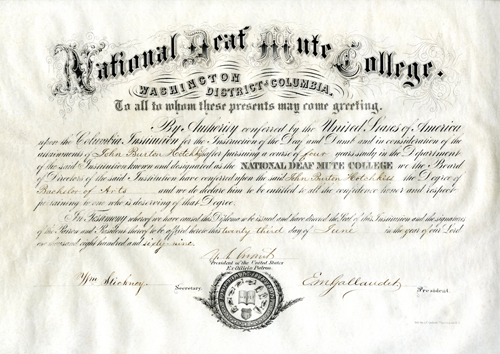 National Deaf Mute College.
WASHINGTON
DISTRICT OF COLUMBIA.
To all to whom these presents may come greeting.
By Authority conferred by the United States of America
upon the Columbia Institution for the Instruction of the Deaf and Dumb and in consideration of the
attainments of John Burton Hotchkiss after pursuing a course of four years study in the Department
of said Institution known and designated as the NATIONAL DEAF MUTE COLLEGE we the Board
of Directors of the said Institution have conferred upon the said John Burton Hotchkiss the Degree of
Bachelor of Arts and we do declare him to be entitled to all the confidence honor and respect
pertaining to one who is deserving of that Degree.
In Testimony whereof we have caused this Diploma to be issued and have directed the Seal of this Institution and the signatures
of the Patron and President thereof to be affixed hereto this twenty third day of June in the year of our Lord
one thousand eight hundred and sixty nine
U. S. Grant
President of the United States
Ex Officio Patron.
Wm Stickney. Secretary.
E M Gallaudet President.